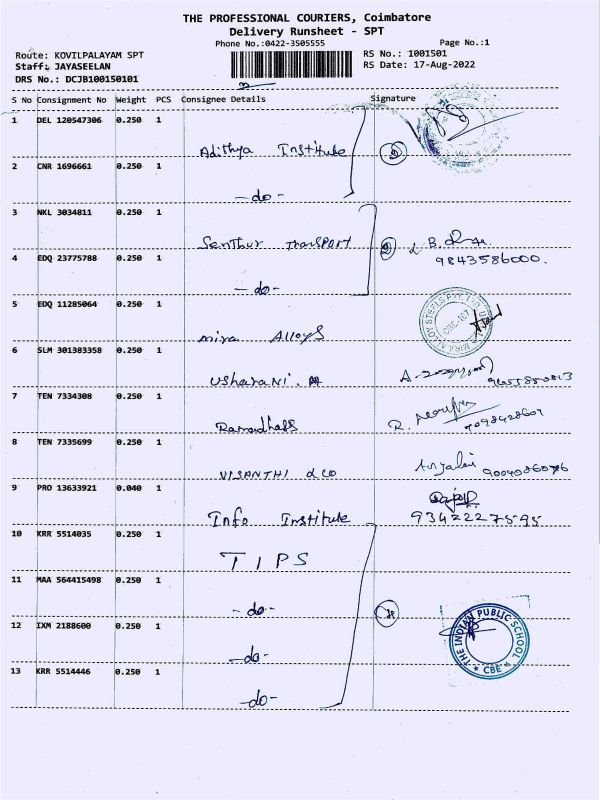 THE PROFESSIONAL COURIERS, Coimbatore
Delivery Runsheet - SPT
Phone No.:0422-3505555
Page No.:1
Route: KOVILPALAYAM SPT
RS No.: 1001501
Staff: JAYASEELAN
RS Date: 17-Aug-2022
DRS No.: DCJB100150101
S No Consignment No Weight PCS Consignee Details Signature
1 DEL 120547306 0.250 1
Adithya Institute
2 CNR 1696661 0.250 1
-do-
3 NKL 3034811 0.250 1
Senthur Transport
4 EDQ 23775788 0.250 1
9843586000.
-do-
5 EDQ 11285064 0.250 1
Mira Alloys
MIRA ALLOY STEELS PVT. LTD.
6 SLM 301383358 0.250 1
Usharani. A
7 TEN 7334308 0.250 1
Ramadhass
R.
8 TEN 7335699 0.250 1
VISANTHI & CO
9 PRO 13633921 0.040 1
Info Institute
9342227595
10 KRR 5514035 0.250 1
TIPS
11 MAA 564415498 0.250 1
-do-
12 IXM 2188600 0.250 1
-do-
THE INDIAN PUBLIC SCHOOL
* CBE *
13 KRR 5514446 0.250 1
-do-